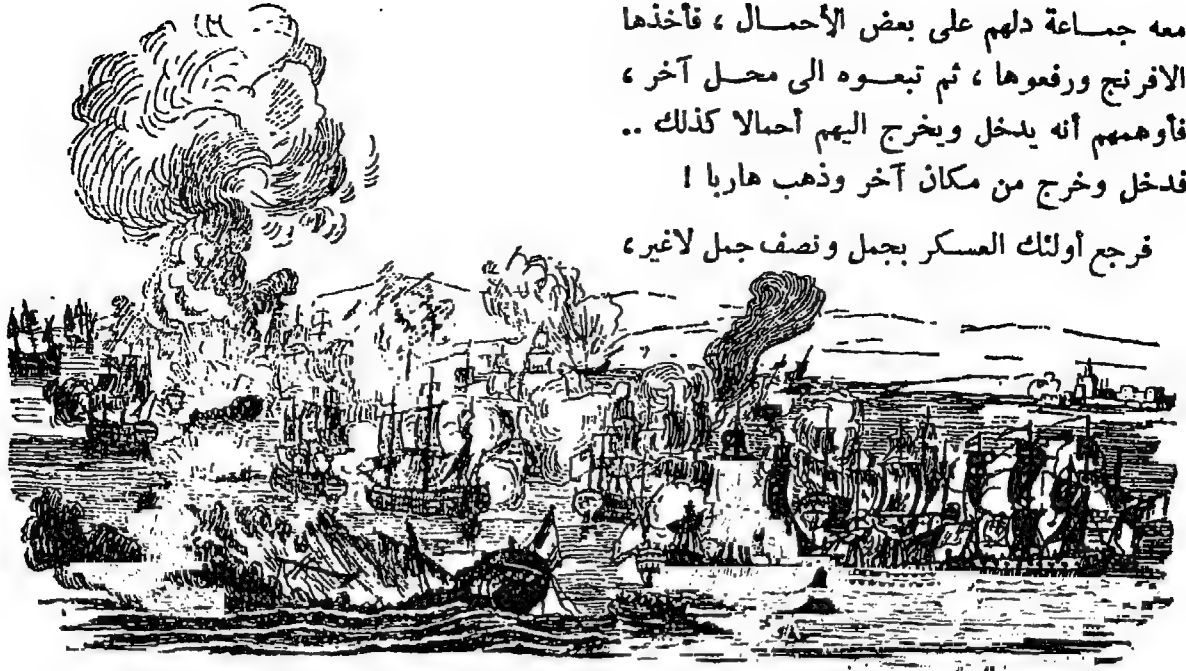 معه جمــاعة دلهم على بعض الأحمــال ، فأخذها
الافرنج ورفعوها ، ثم تبعــوه الى محــل آخر ،
فأوهمهم أنه يدخل ويخرج اليهم أحمالا كذلك ..
فدخل وخرج من مكان آخر وذهب هاربا !
فرجع أولئك العسكر بجمل ونصف جمل لاغير ،